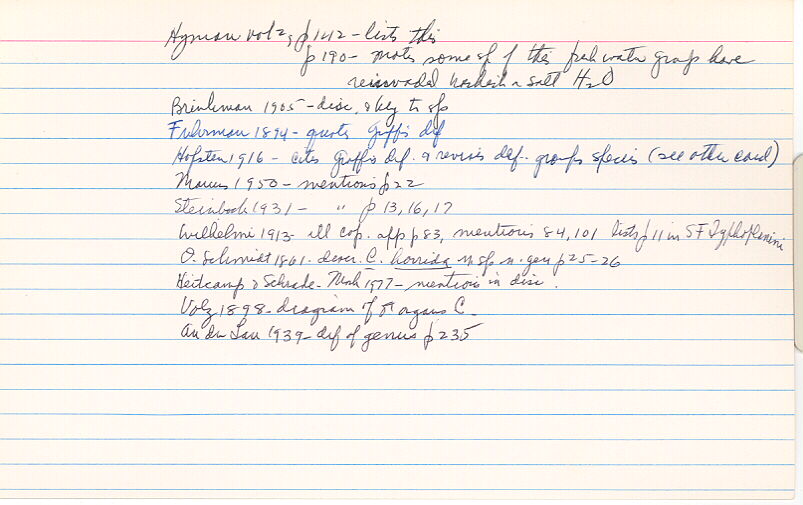 Hyman vol 2, p 142 - lists this
p 190 - notes some sp of this fresh water group have
reinvaded brackish or salt H2O
Brinkman 1905 - disc. & key to sps
Fuhrman 1894 - quotes Graff's def
Hofsten 1916 - cites Graff's def. & revises def. groups species (see other card)
Marcus 1950 - mentions p 22
Steinbock 1931 - " p 13, 16, 17
Wilhelmi 1913 - ill cop. app p 83, mentions 84, 101 lists p 11 in SF Typhloplanini
O. Schmidt 1861 - descr. C. horrida n sp n. gen p 25-26
Heitkamp & Schrade-Mock 1977 - mentions in disc.
Volz 1898 - diagram of organs C.
An der Lan 1939 - def of genus p 235